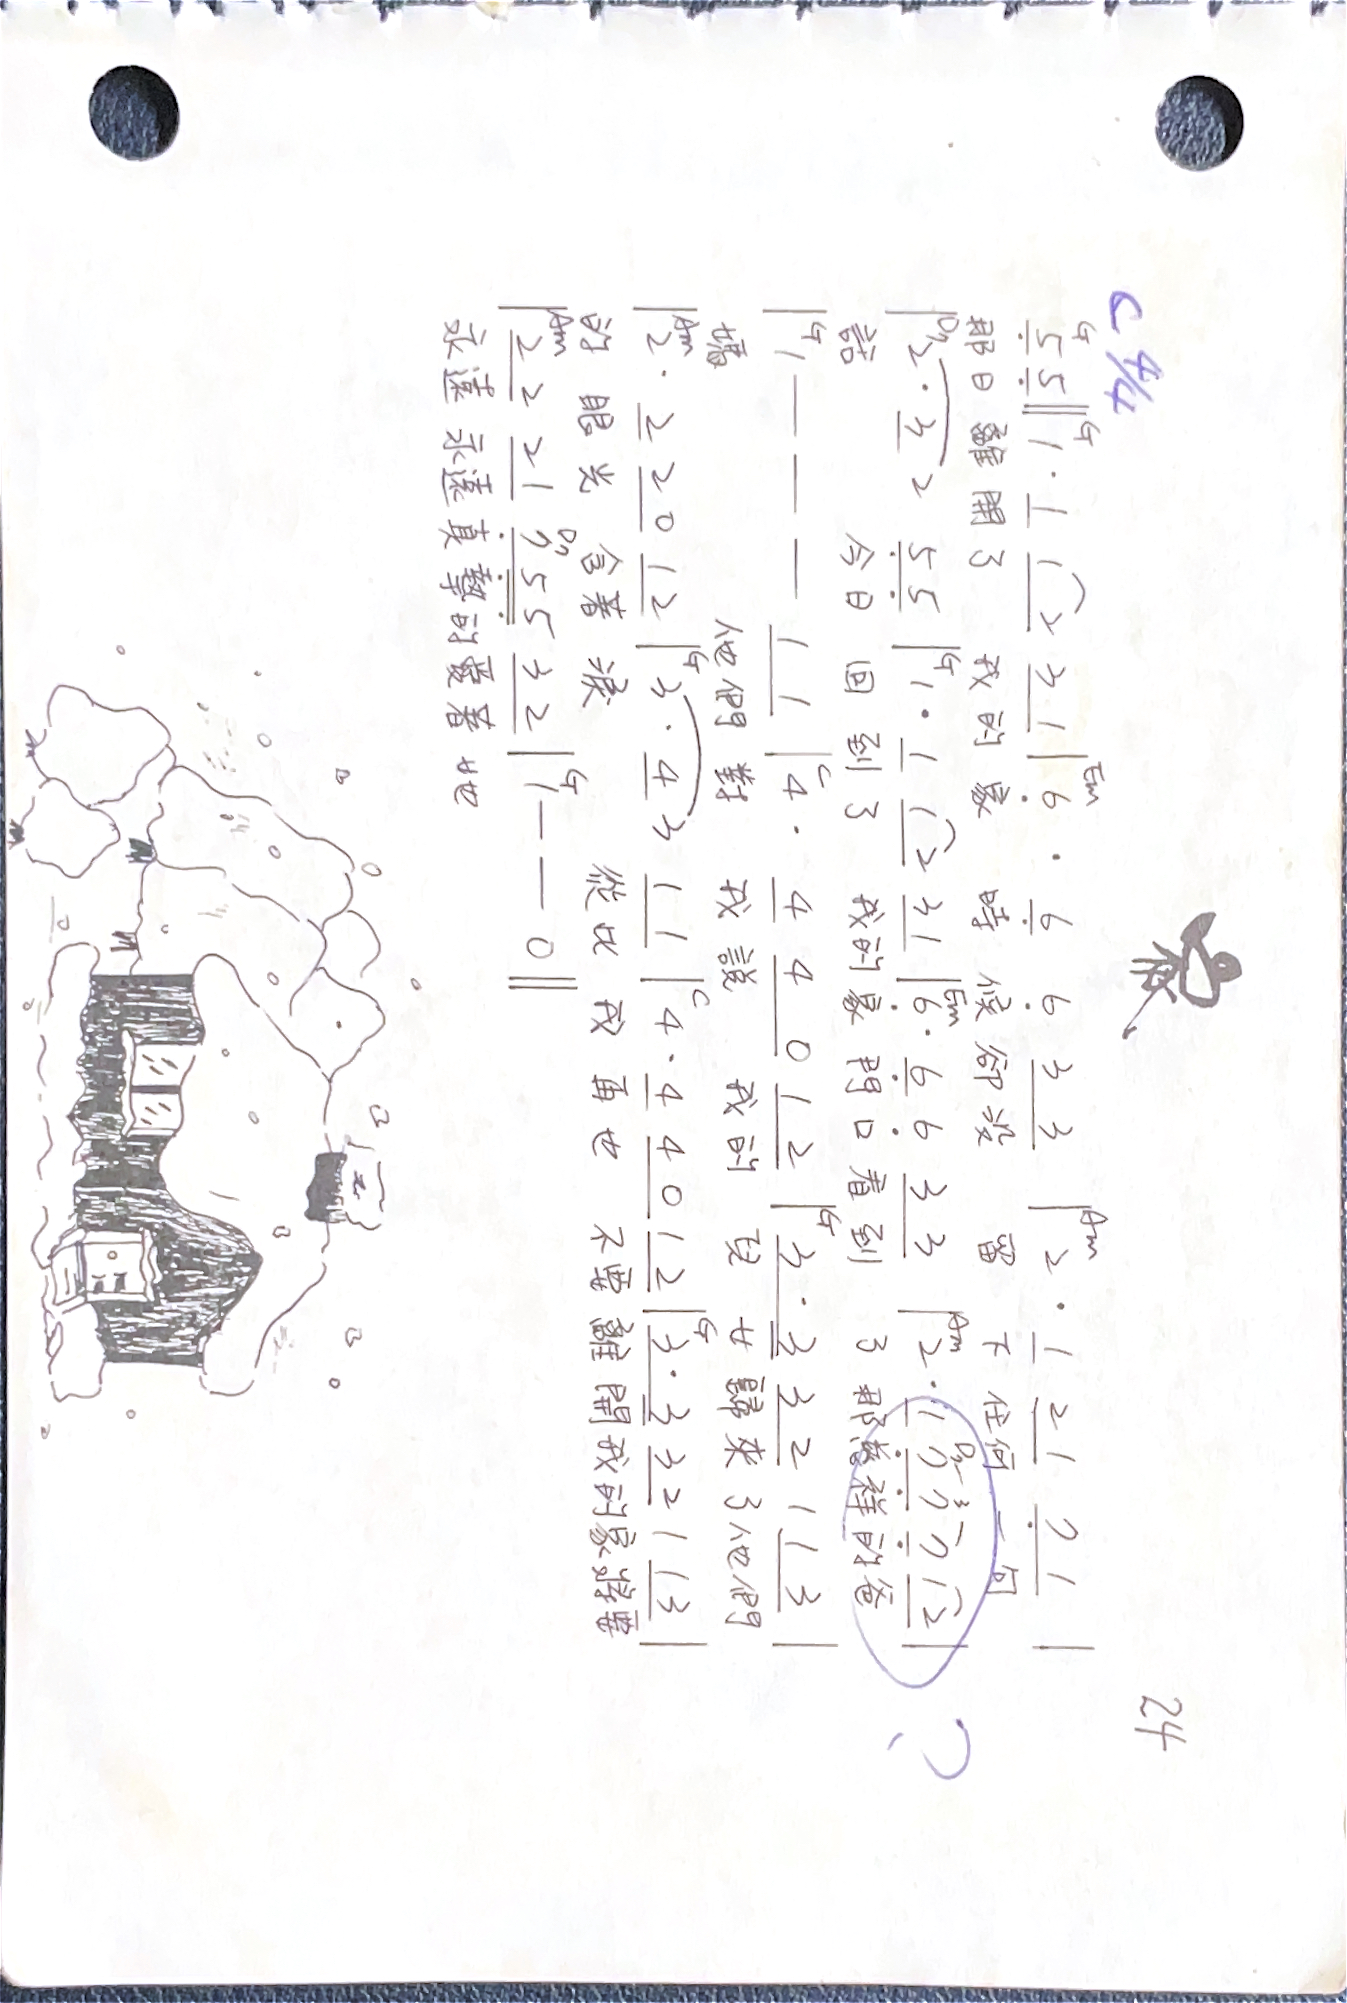 家
24
C 4/4
G G Em Am
5 5 || 1 · 1 1 2 3 1 | 6 · 6 6 3 3 | 2 · 1 2 1 7 1 |
那日離開了 我的家 時候卻沒 留下任何一句
D7 G Em Am D7 3
| 2 · 3 2 5 5 | 1 · 1 1 2 3 1 | 6 · 6 6 3 3 | 2 · 1 7 7 7 1 2 | ?
話 今日回到了 我的家門口看到 了那慈祥的爸
G C G
| 1 — — — 1 1 | 4 · 4 4 0 1 2 | 3 · 3 3 2 1 1 3 |
媽 他們對 我說 我的兒女歸來了他們
Am G C G
| 2 · 2 2 0 1 2 | 3 · 4 3 1 1 | 4 · 4 4 0 1 2 | 3 · 3 3 2 1 1 3 |
的眼光 含著淚 從此我再也 不要離開我的家將要
Am D7 G
| 2 2 2 1 7 5 5 3 2 | 1 — — 0 ||
永遠永遠真摯的愛著她